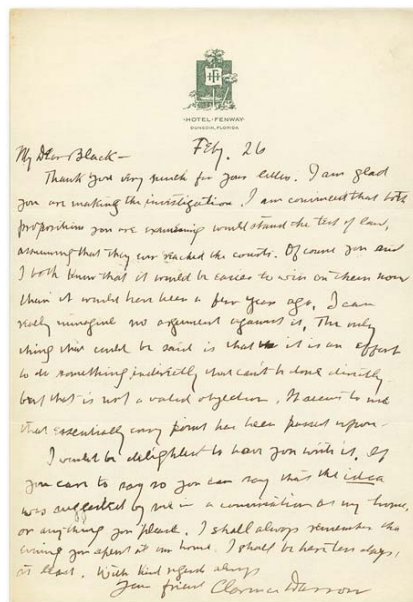 HOTEL FENWAY
DUNEDIN, FLORIDA
Feby. 26
My Dear Black—
Thank you very much for your letter. I am glad
you are making the investigation. I am convinced that both
propositions you are examining would stand the test of law,
assuming that they ever reached the courts. Of course you and
I both know that it would be easier to win on them now
than it would have been a few years ago. I can
really imagine no argument against it. The only
thing that could be said is that it is an effort
to do something indirectly that can't be done directly
but that is not a valid objection. It seems to me
that essentially every point has been passed upon.
I would be delighted to have you write it. If
you care to say so you can say that the idea
was suggested by me in a conversation at my home,
or anything you please. I shall always remember the
evening you spent at our home. I shall be here ten days,
at least. With kind regards always
Your friend Clarence Darrow